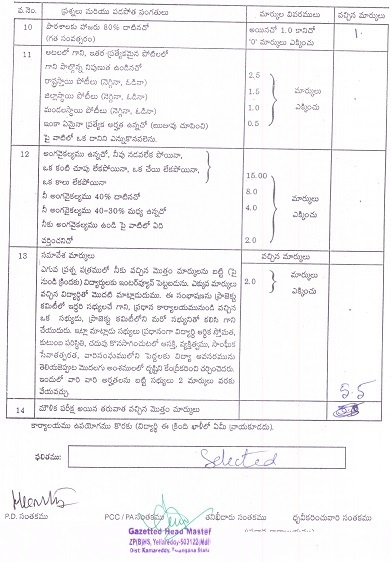 వ.నెం. ప్రశ్నలు మరియు పడపోత సంగతులు మార్కుల వివరములు వచ్చిన మార్కులు
10 పాఠశాలకు హాజరు 80% దాటినచో అయినచో 1.0 కానిచో 1
(గత సంవత్సరం) '0' మార్కులు ఎక్కించు
11 ఆటలలో గాని, ఇతర ప్రత్యేకమైన పోటీలలో
గాని పాల్గొన్న నిపుణత ఉండినచో 2.5
రాష్ట్రస్థాయి పోటీలు (నెగ్గినా, ఓడినా) 1.5 మార్కులు
జిల్లాస్థాయి పోటీలు (నెగ్గినా, ఓడినా) 1.0 ఎక్కించు
మండలస్థాయి పోటీలు (నెగ్గినా, ఓడినా) 0.5
ఇంకా ఏమైనా ప్రత్యేక అర్హత ఉన్నచో (ఋజువు చూపించి)
పై వాటిలో ఒక దానిని ఎన్నుకొనవలెను.
12 అంగవైకల్యము ఉన్నచో, నీవు నడవలేక పోయినా,
ఒక కంటి చూపు లేకపోయినా, ఒక చేయి లేకపోయినా,
ఒక కాలు లేకపోయినా 15.00
నీ అంగవైకల్యము 40% దాటినచో 8.0 మార్కులు
నీ అంగవైకల్యము 40-30% మధ్య ఉన్నచో 4.0 ఎక్కించు
నీకు అంగవైకల్యము ఉండి పై వాటిలో ఏది
వర్తించనిచో 2.0
13 సమావేశ మార్కులు వచ్చిన మార్కులు
ఎగువ ప్రశ్న పత్రములో నీకు వచ్చిన మొత్తం మార్కులను బట్టి (పై 2.0 మార్కులు
నుండి క్రిందకు) విద్యార్థులకు ఇంటర్వ్యూకి పెట్టబడును. ఎక్కువ మార్కులు ఎక్కించు
వచ్చిన విద్యార్థితో మొదటి మాట్లాడుదుము. ఈ సంభాషణను ప్రాజెక్టు
కమిటీలో ఇద్దరి సభ్యులచే గాని, ప్రధాన కార్యాలయమునుండి వచ్చిన
ఒక సభ్యుడు, ప్రాజెక్టు కమిటీలోని మరో సభ్యునితో కలిసి గాని
చేయుదురు. ఇట్లా మాట్లాడు సభ్యులు ప్రధానంగా విద్యార్థి ఆర్థిక స్తోమత,
కుటుంబ పరిస్థితి, చదువు కొనసాగించుటలో ఆసక్తి, వ్యక్తిత్వము, సాంఘీక
సేవాతత్పరత, వారిసంఘములోని పెద్దలకు విద్యా అవసరమును
తెలియజెప్పుట మొదలగు అంశములలో దృష్టిని కేంద్రీకరించి చర్చించెదరు.
ఇందులో వారి వారి అర్హతలను బట్టి సభ్యులు 2 మార్కులు వరకు
వేయువచ్చు.
14 మౌళిక పరీక్ష అయిన తరువాత వచ్చిన మొత్తం మార్కులు
కార్యాలయము ఉపయోగము కొరకు (విద్యార్థి ఈ క్రింది ఖాళీలో ఏమీ వ్రాయకూడదు).
ఫలితము: Selected
P.D. సంతకము PCC / PA సంతకము తనిఖీదారు సంతకము ధృవీకరించువారి సంతకము
Gazetted Head Master
ZP(B)HS, Yellareddy-503122(Mdl)
Dist. Kamareddy, Telangana State